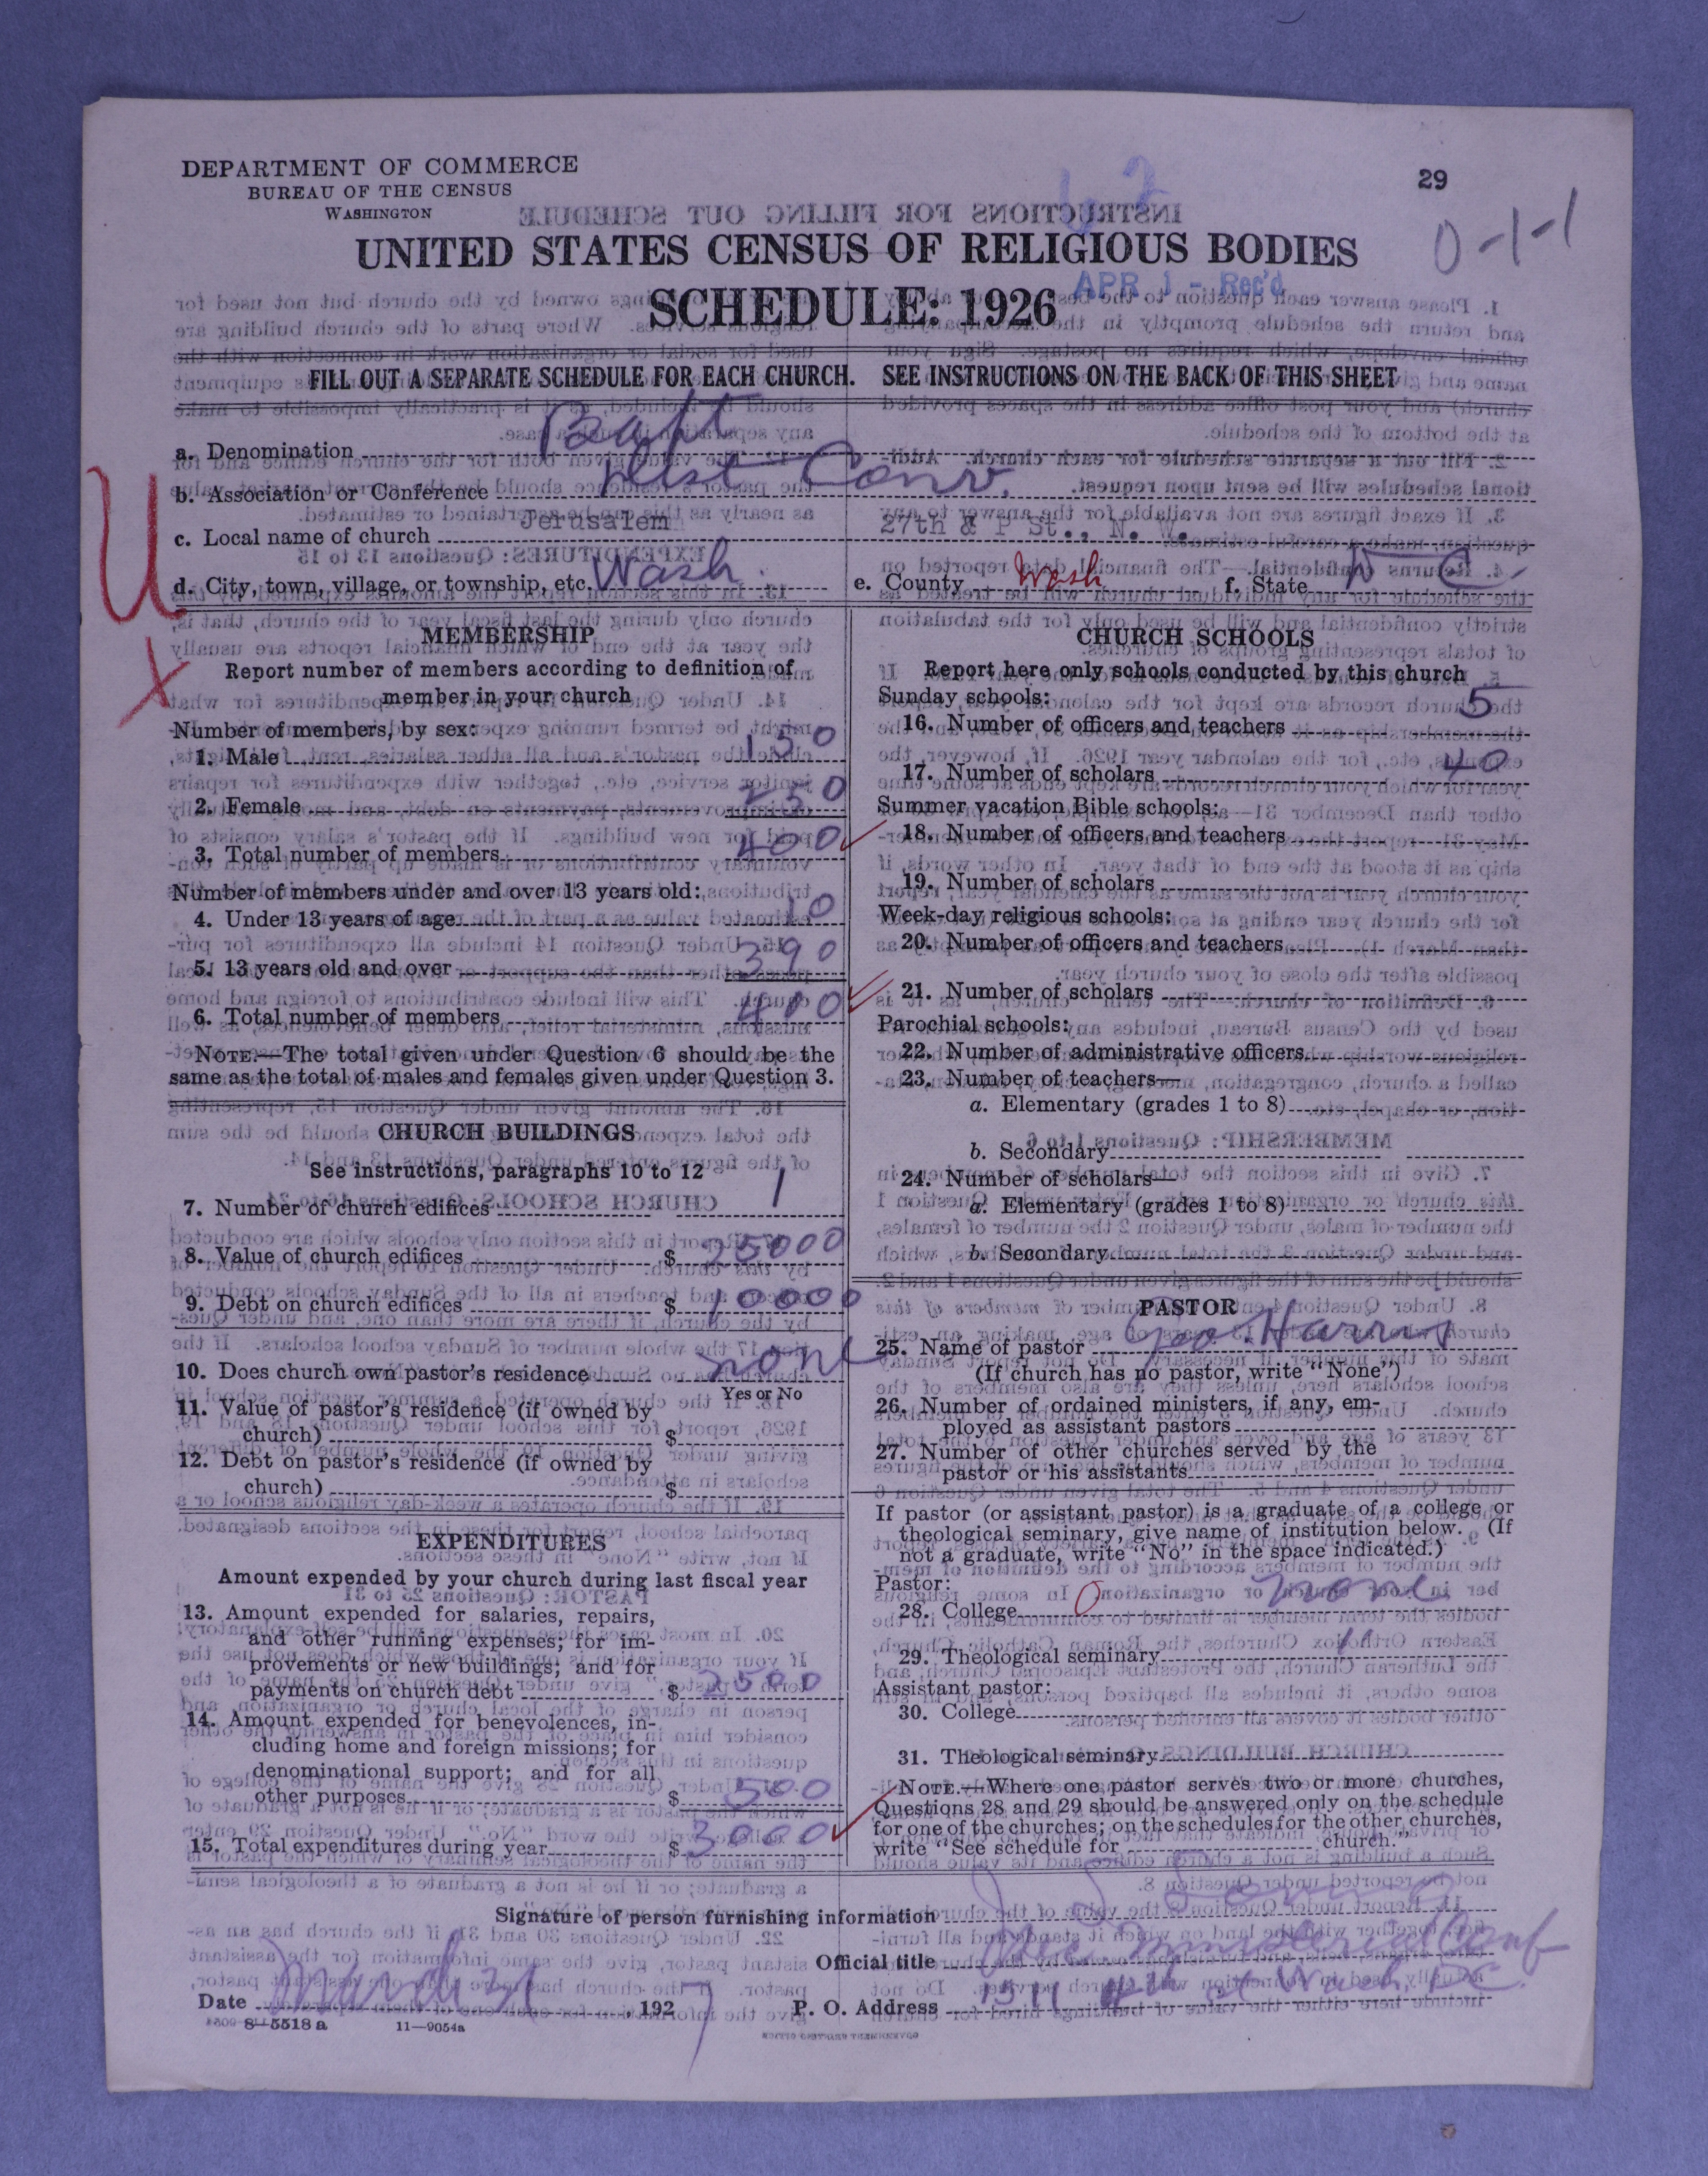 DEPARTMENT OF COMMERCE
BUREAU OF THE CENSUS
WASHINGTON
29
0-1-1
UNITED STATES CENSUS OF RELIGIOUS BODIES
APR 1 - Rec'd
SCHEDULE: 1926
FILL OUT A SEPARATE SCHEDULE FOR EACH CHURCH. SEE INSTRUCTIONS ON THE BACK OF THIS SHEET
U
X
a. Denomination Bapt
b. Association or Conference Dist Conv.
c. Local name of church Jerusalem 27th & P St., N. W.
d. City, town, village, or township, etc. Wash. e. County Wash f. State D C.
MEMBERSHIP
Report number of members according to definition of
member in your church
Number of members, by sex:
1. Male 150
2. Female 250
3. Total number of members 400
Number of members under and over 13 years old:
4. Under 13 years of age 10
5. 13 years old and over 390
6. Total number of members 400
NOTE.—The total given under Question 6 should be the
same as the total of males and females given under Question 3.
CHURCH BUILDINGS
See instructions, paragraphs 10 to 12
7. Number of church edifices 1
8. Value of church edifices $ 25000
9. Debt on church edifices $ 10000
10. Does church own pastor's residence none
Yes or No
11. Value of pastor's residence (if owned by
church) $
12. Debt on pastor's residence (if owned by
church) $
EXPENDITURES
Amount expended by your church during last fiscal year
13. Amount expended for salaries, repairs,
and other running expenses; for im-
provements or new buildings; and for
payments on church debt $ 2500
14. Amount expended for benevolences, in-
cluding home and foreign missions; for
denominational support; and for all
other purposes $ 500
15. Total expenditures during year $ 3000
CHURCH SCHOOLS
Report here only schools conducted by this church
Sunday schools:
16. Number of officers and teachers 5
17. Number of scholars 40
Summer vacation Bible schools:
18. Number of officers and teachers
19. Number of scholars
Week-day religious schools:
20. Number of officers and teachers
21. Number of scholars
Parochial schools:
22. Number of administrative officers
23. Number of teachers—
a. Elementary (grades 1 to 8)
b. Secondary
24. Number of scholars—
a. Elementary (grades 1 to 8)
b. Secondary
PASTOR
25. Name of pastor Geo. Harris
(If church has no pastor, write "None")
26. Number of ordained ministers, if any, em-
ployed as assistant pastors
27. Number of other churches served by the
pastor or his assistants
If pastor (or assistant pastor) is a graduate of a college or
theological seminary, give name of institution below. (If
not a graduate, write "No" in the space indicated.)
Pastor:
28. College 0 none
29. Theological seminary "
Assistant pastor:
30. College
31. Theological seminary
NOTE.—Where one pastor serves two or more churches,
Questions 28 and 29 should be answered only on the schedule
for one of the churches; on the schedules for the other churches,
write "See schedule for church."
Signature of person furnishing information
Official title
Date March 31, 1927 P. O. Address 1511 4th st Wash, D.C.
8—5518 a 11—9054a